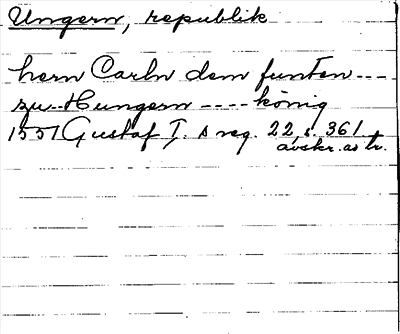 Ungern, republik
hern Carln dem funten ----
zu -- Hungern ---- könig
1557 Gustaf I. s reg. 22, s. 361
avskr. av tr.